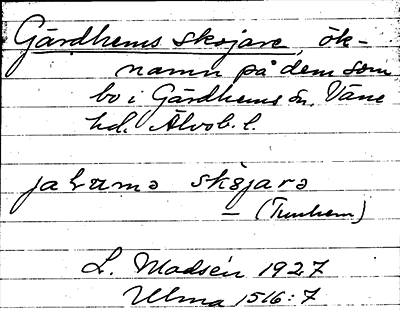 Gärdhems skojare, ök-
namn på dem som
bo i Gärdhems sn, Väne
hd. Älvsb. l.
skøjarə
— (Tunhem)
L. Madsén 1927
Ulma 1516:7